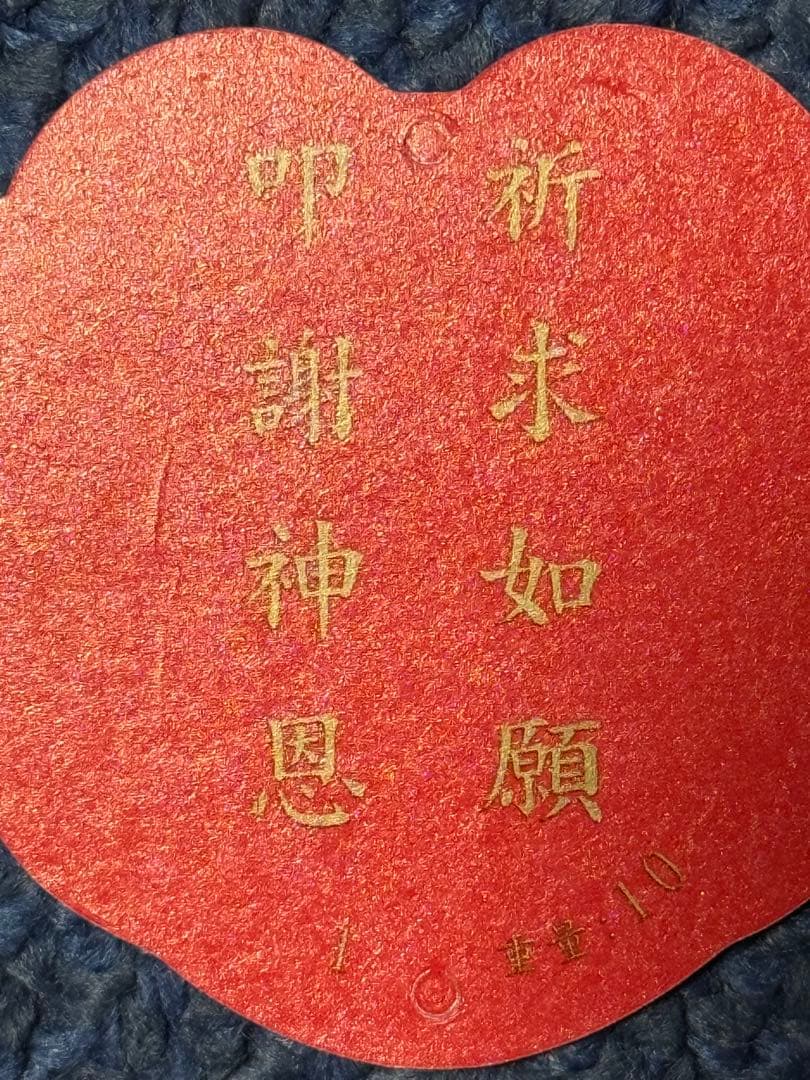 祈求如願
叩謝神恩
重量:10
1